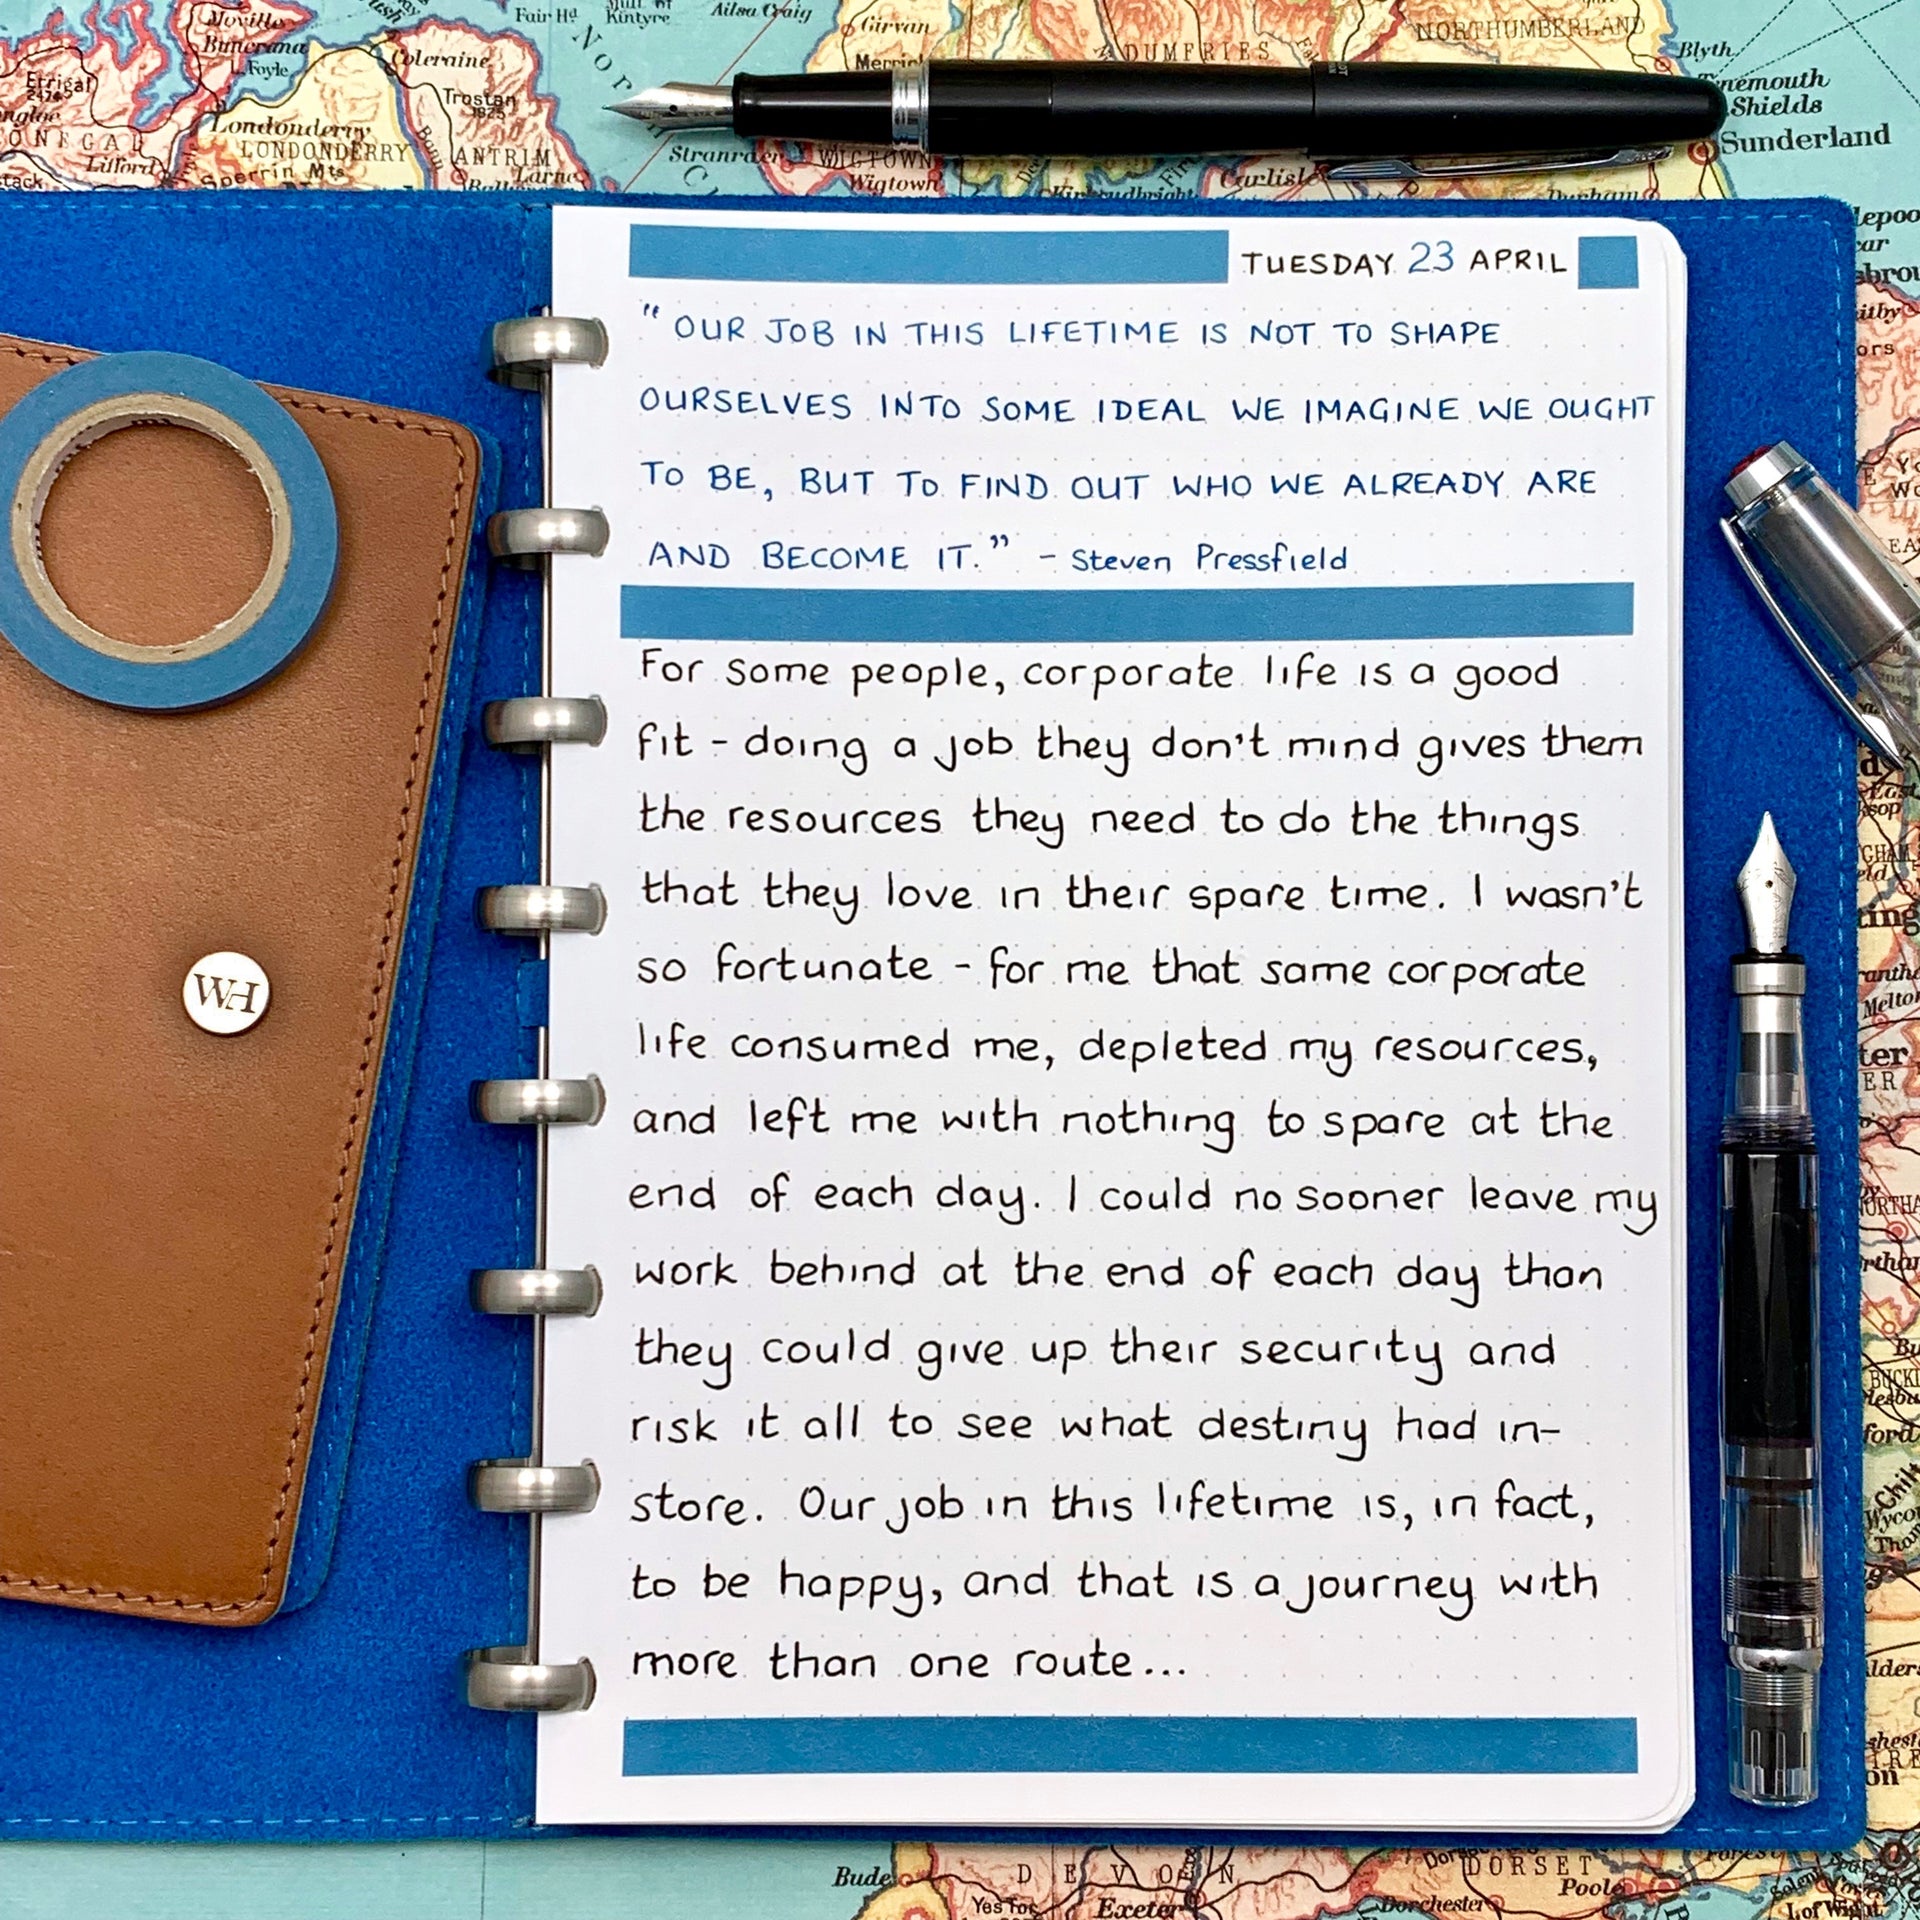 Moville
Buncrana
L. Foyle
Coleraine
Fair Hd
Kintyre
Ailsa Craig
Girvan
DUMFRIES
NORTHUMBERLAND
Blyth
Errigal
2474
Trostan
1825
Londonderry
LONDONDERRY
ANTRIM
Larne
Lifford
Sperrin Mts
Stranraer
WIGTOWN
Wigtown
Kirkcudbright
Carlisle
Durham
Shields
Sunderland
TUESDAY 23 APRIL
"OUR JOB IN THIS LIFETIME IS NOT TO SHAPE
OURSELVES INTO SOME IDEAL WE IMAGINE WE OUGHT
TO BE, BUT TO FIND OUT WHO WE ALREADY ARE
AND BECOME IT." - Steven Pressfield
For some people, corporate life is a good
fit - doing a job they don't mind gives them
the resources they need to do the things
that they love in their spare time. I wasn't
so fortunate - for me that same corporate
life consumed me, depleted my resources,
and left me with nothing to spare at the
end of each day. I could no sooner leave my
work behind at the end of each day than
they could give up their security and
risk it all to see what destiny had in-
store. Our job in this lifetime is, in fact,
to be happy, and that is a journey with
more than one route...
WH
Bude
DEVON
Exeter
Yes Tor
DORSET
Dorchester
Poole
I. of Wight